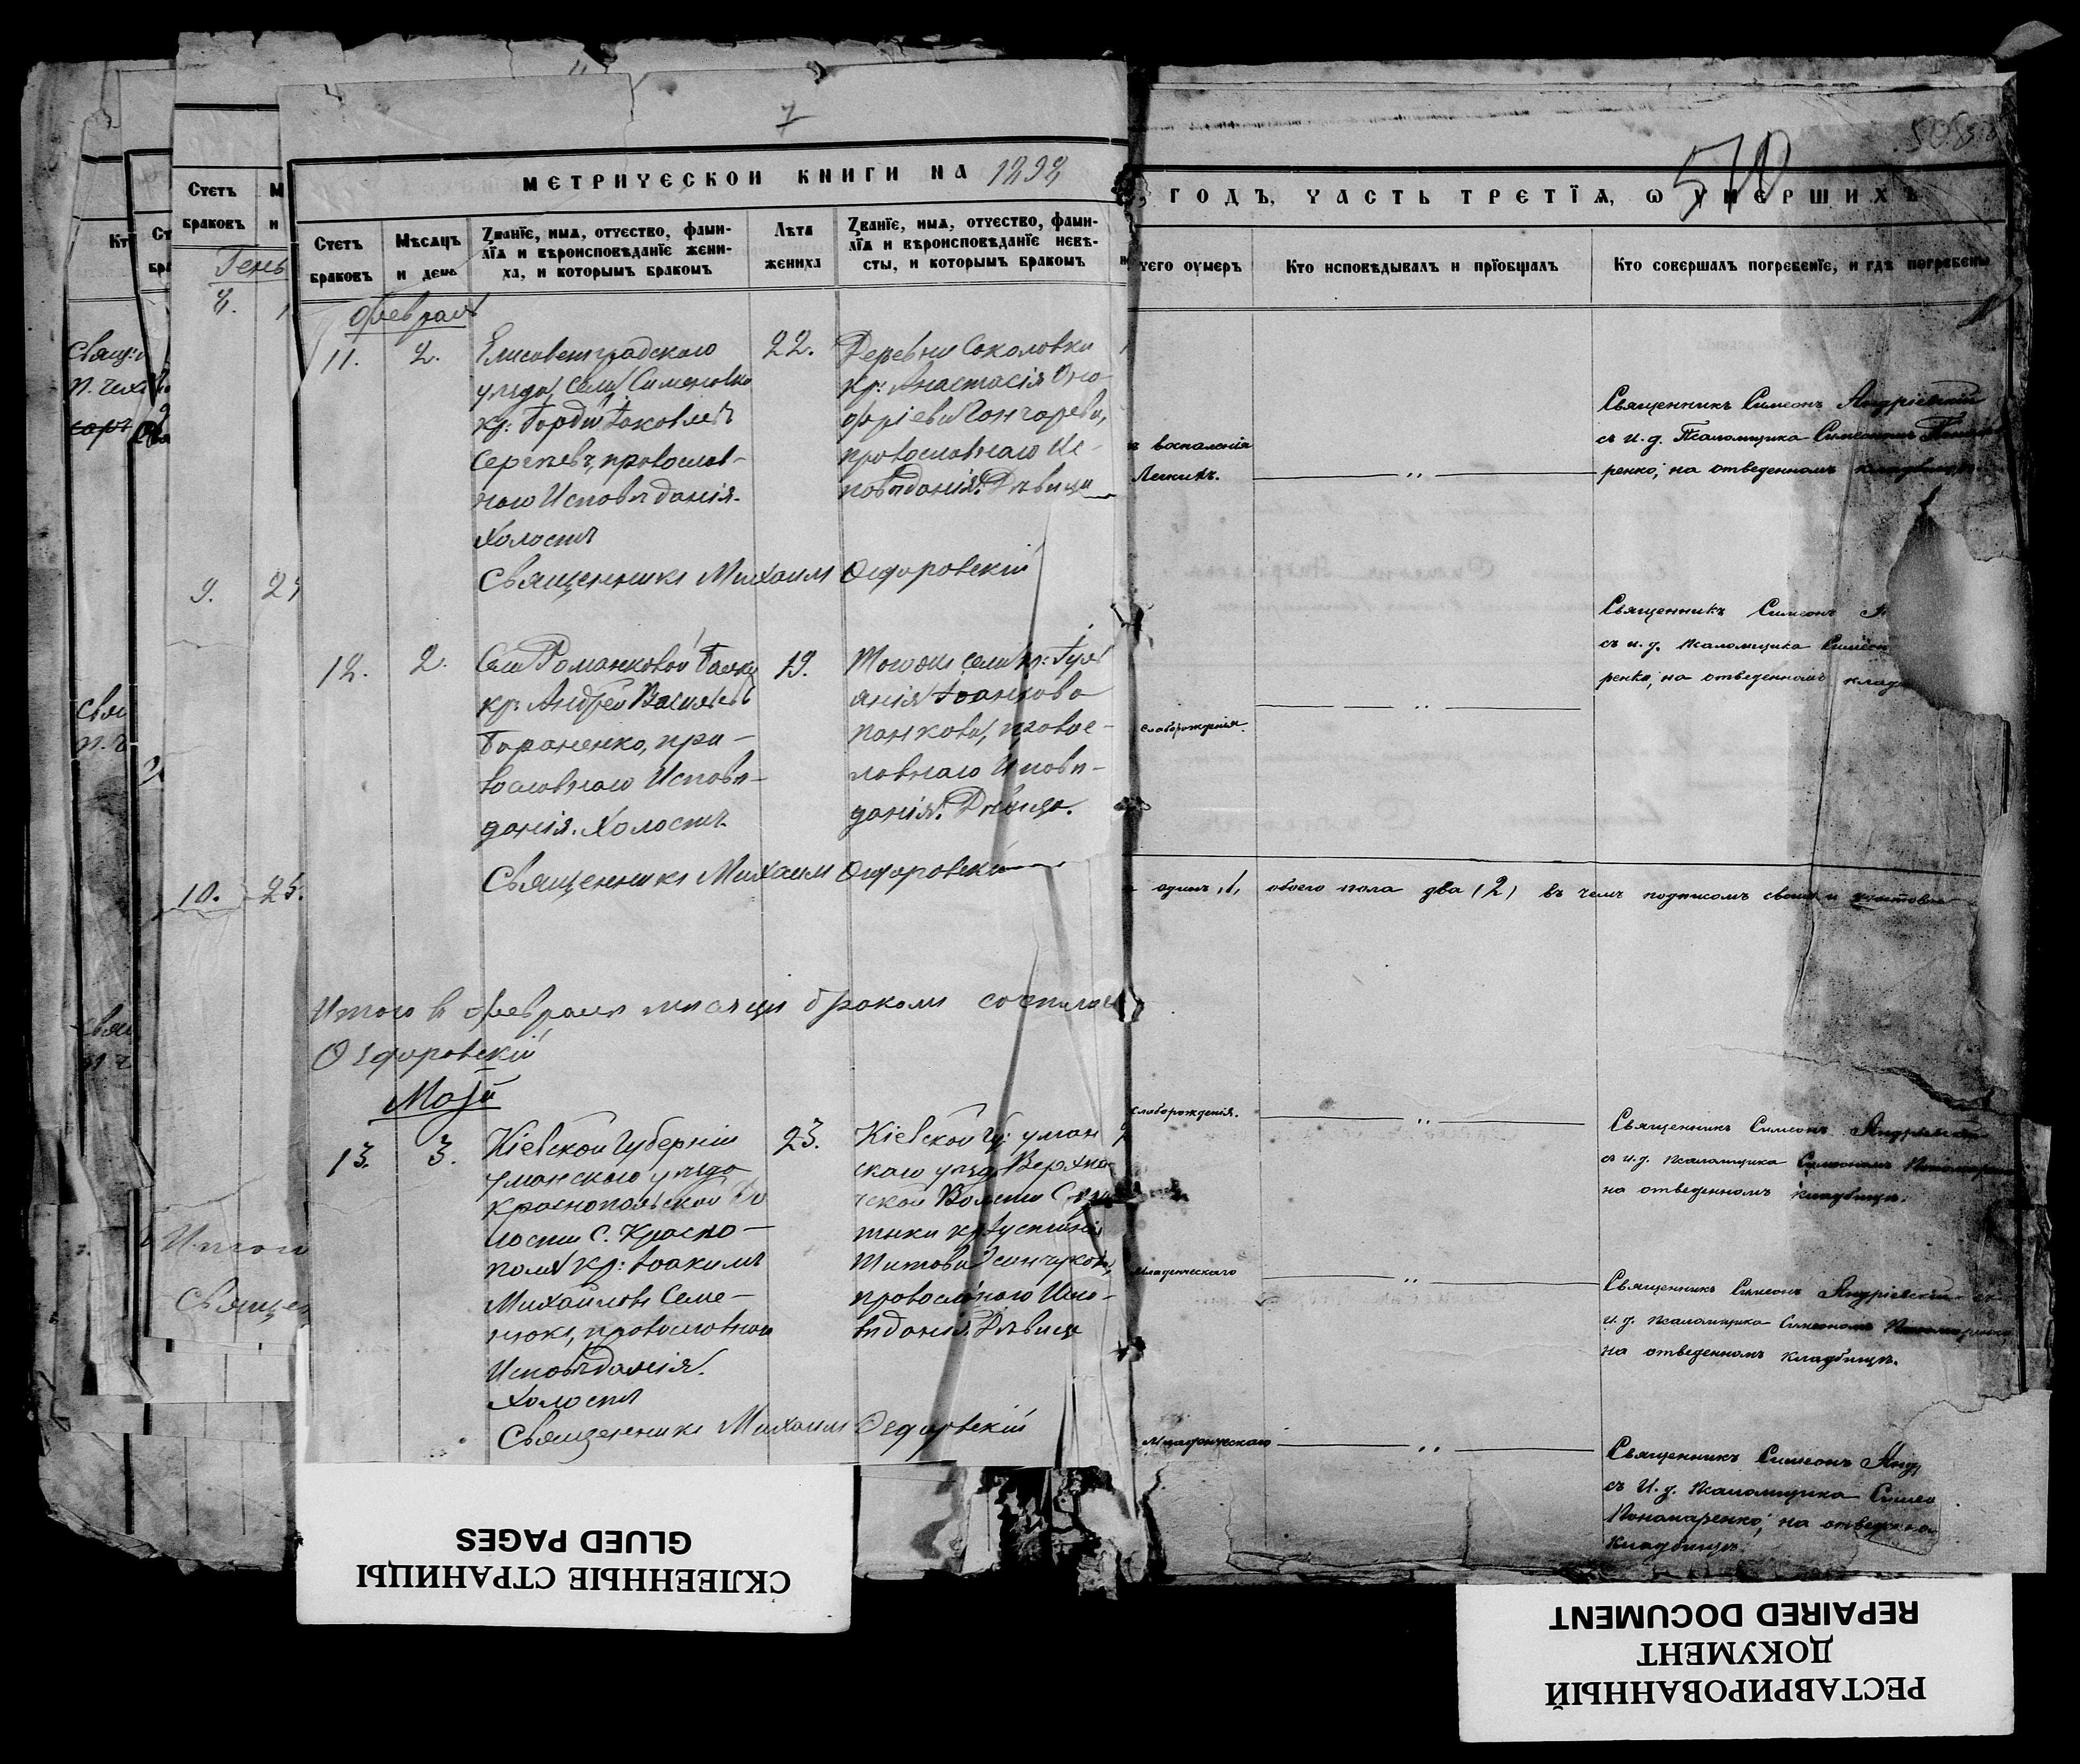 7
МЕТРИЧЕСКОЙ КНИГИ НА 1898
Счетъ браковъ
Мѣсяцъ и день
Званїе, имя, отчество, фами-
лїя и вѣроисповѣданїе жени-
ха, и которымъ бракомъ
Лѣта жениха
Званїе, имя, отчество, фами-
лїя и вѣроисповѣданїе невѣ-
сты, и которымъ бракомъ
Февраль
11.
2.
Елисаветградскаго
уѣзда, села
кр: Гордій Іаковлевъ
православ-
наго Исповѣданія.
Холостъ
22.
Деревни Соколовки
кр: Анастасія Оно-
фріева Гончарева,
православнаго Ис-
повѣданія. Дѣвица
Священникъ Михаилъ Ѳедоровскій
12.
2.
Села Романковой Балки
кр: Андрей Васильевъ
Бараненко, пра-
вославнаго Исповѣ-
данія. Холостъ.
19.
Того же села кр:
Іоанкова
Панкова, правос-
лавнаго Исповѣ-
данія. Дѣвица.
Священникъ Михаилъ Ѳедоровскій
Итого въ февралѣ мѣсяцѣ бракомъ
Ѳедоровскій
Май
13.
3.
Кіевской Губерніи
Уманскаго уѣзда
Краснопольской Во
лости С. Красно-
поля кр: Іоакимъ
Михайловъ Семе-
нюкъ, православнаго
Исповѣданія.
Холостъ
23.
Кіевской Гу: Уман
скаго уѣзд. Верхня-
чской Волости
кр: Іустинія
Титова
православнаго Испо-
вѣданія. Дѣвица
Священникъ Михаилъ Ѳедоровскій
Счетъ
браковъ
Генв
8.
9.
10.
25.
Итого
570
ГОДЪ, ЧАСТЬ ТРЕТЇЯ, Ѡ УМЕРШИХЪ
чего оумеръ
Кто исповѣдывалъ и прїобщалъ
Кто совершалъ погребенїе, и гдѣ погребены
воспаленія
Легкихъ.
Священникъ Симеонъ Андріевскій
съ и. д. Псаломщика Симеономъ
ренко; на отведенномъ кладбищѣ.
слаборожденія.
Священникъ Симеонъ
съ и. д. Псаломщика Симеон
ренко; на отведенномъ кладб
одинъ /1/, обоего пола два (2) въ чемъ подписомъ своимъ и
слаборожденія.
Священникъ Симеонъ Андріевскій
съ и. д. Псаломщика Симеономъ Пономаренко
на отведенномъ кладбищѣ.
Младенческаго
Священникъ Симеонъ Андріевскій съ
и. д. Псаломщика Симеономъ Пономаренко
на отведенномъ кладбищѣ.
Младенческаго
Священникъ Симеонъ Анд
съ И. д. Псаломщика Симео
Пономаренко; на отведенномъ
кладбищѣ.
СКЛЕЕННЫЕ СТРАНИЦЫ
GLUED PAGES
РЕСТАВРИРОВАННЫЙ
ДОКУМЕНТ
REPAIRED DOCUMENT